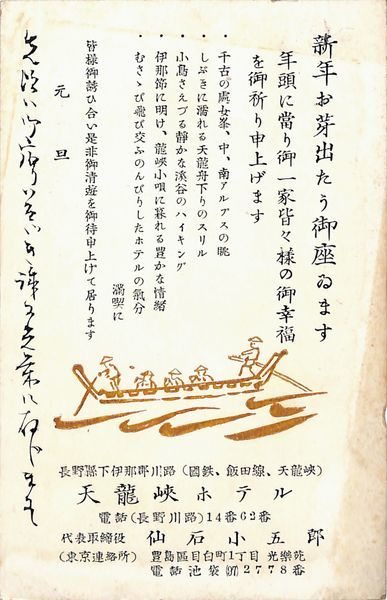 新年お芽出たう御座ゐます
年頭に當り御一家皆々様の御幸福
を御祈り申上げます
・千古の處女峯、中、南アルプスの眺
・しぶきに濡れる天龍舟下りのスリル
・小鳥さえづる静かな溪谷のハイキング
・伊那節に明け、龍峽小唄に暮れる豊かな情緒
・むさゝび飛び交ふのんびりしたホテルの氣分
満喫に
皆様御誘ひ合い是非御清遊を御待申上げて居ります
元旦
長野縣下伊那郡川路(國鉄、飯田線、天龍峽)
天龍峽ホテル
電話(長野川路)14番62番
代表取締役 仙石小五郎
(東京連絡所) 豊島區目白町1丁目 光樂苑
電話池袋(97)2778番